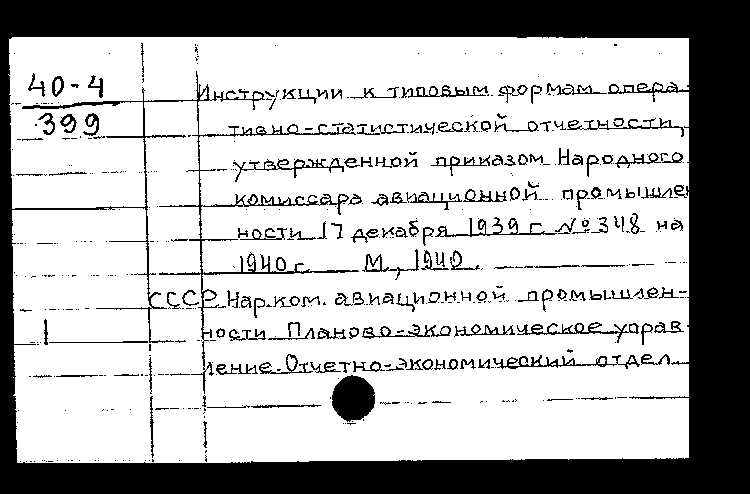 40-4
399
Инструкции к типовым формам опера-
тивно-статистической отчетности,
утвержденной приказом Народного
комиссара авиационной промышлен
ности 17 декабря 1939 г. №348 на
1940 г. М., 1940.
СССР. Нар.ком. авиационной промышлен-
1 ности Планово-экономическое управ-
ление. Отчетно-экономический отдел